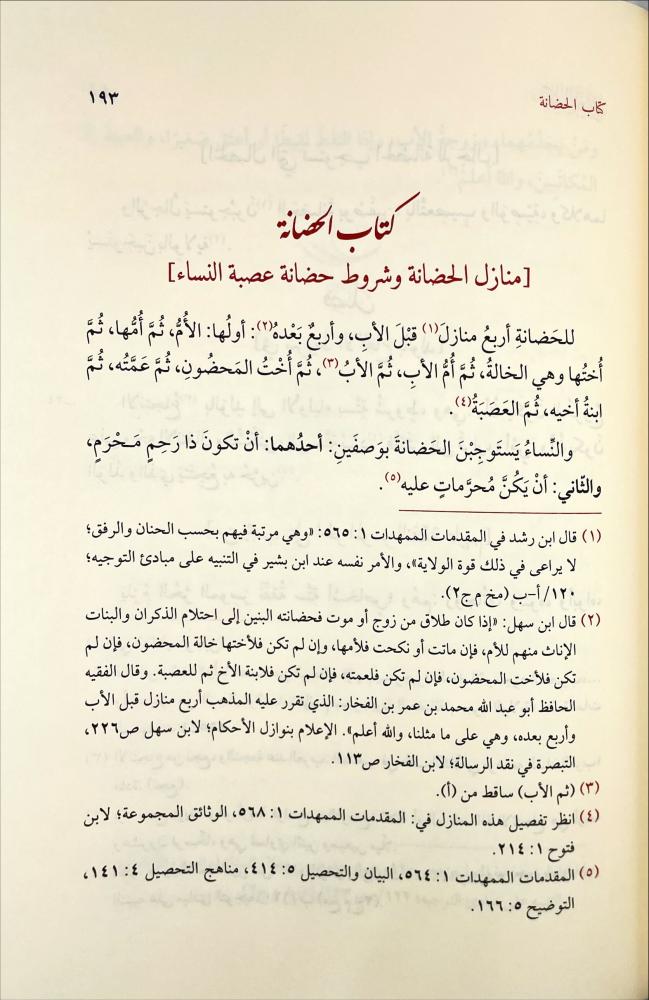 كتاب الحضانة
١٩٣
كتاب الحضانة
[منازل الحضانة وشروط حضانة عصبة النساء]
للحَضانةِ أربعُ منازلَ(١) قبْلَ الأبِ، وأربعٌ بَعْدهُ(٢): أولُها: الأُمُّ، ثُمَّ أُمُّها، ثُمَّ
أُختُها وهي الخالةُ، ثُمَّ أمُّ الأبِ، ثُمَّ الأبُ(٣)، ثُمَّ أُخْتُ المَحضُونِ، ثمَّ عَمَّتُه، ثُمَّ
ابنةُ أخيه، ثُمَّ العَصَبَةُ(٤).
والنِّساءُ يَستَوجِبْنَ الحَضانةَ بوَصفَينِ: أحدُهما: أنْ تكونَ ذا رَحِمٍ مَـحْرَمٍ،
والثّاني: أنْ يَكُنَّ مُحرَّماتٍ عليه(٥).
(١) قال ابن رشد في المقدمات الممهدات ١: ٥٦٥: «وهي مرتبة فيهم بحسب الحنان والرفق؛
لا يراعى في ذلك قوة الولاية»، والأمر نفسه عند ابن بشير في التنبيه على مبادئ التوجيه؛
١٢٠/ أ-ب (مخ م ج٢).
(٢) قال ابن سهل: «إذا كان طلاق من زوج أو موت فحضانته البنين إلى احتلام الذكران والبنات
الإناث منهم للأم، فإن ماتت أو نكحت فلأمها، وإن لم تكن فلأختها خالة المحضون، فإن لم
تكن فلأخت المحضون، فإن لم تكن فلعمته، فإن لم تكن فلابنة الأخ ثم للعصبة. وقال الفقيه
الحافظ أبو عبد الله محمد بن عمر بن الفخار: الذي تقرر عليه المذهب أربع منازل قبل الأب
وأربع بعده، وهي على ما مثلنا، والله أعلم». الإعلام بنوازل الأحكام؛ لابن سهل ص٢٢٦،
التبصرة في نقد الرسالة؛ لابن الفخار ص١١٣.
(٣) (ثم الأب) ساقط من (أ).
(٤) انظر تفصيل هذه المنازل في: المقدمات الممهدات ١: ٥٦٨، الوثائق المجموعة؛ لابن
فتوح ١: ٢١٤.
(٥) المقدمات الممهدات ١: ٥٦٤، البيان والتحصيل ٥: ٤١٤، مناهج التحصيل ٤: ١٤١،
التوضيح ٥: ١٦٦.